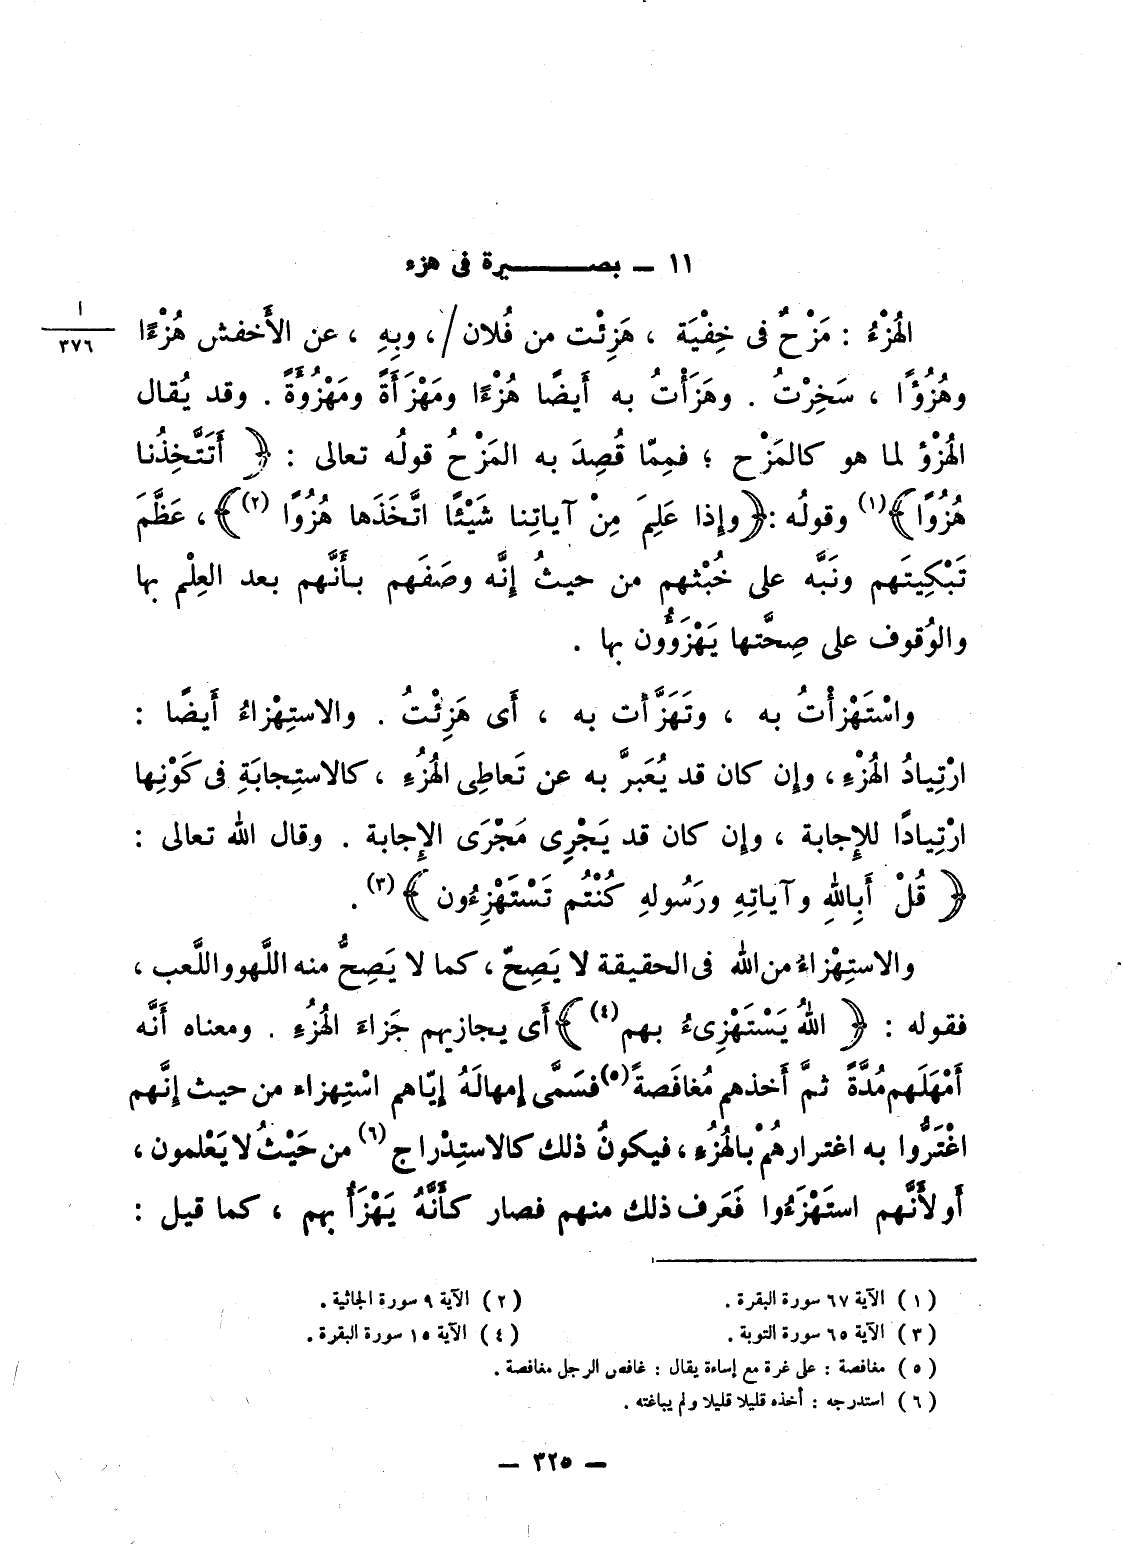 ١١ ــ بصـــــيرة فى هزء
الهُزْءُ : مَزْحٌ فى خِفْيَة ، هَزِئْت من فُلان/، وبِهِ ، عن الأَخفش هُزْءًا
ا
٣٧٦
وهُزُؤًا ، سَخِرْتُ . وهَزَأْتُ به أَيضًا هُزْءًا ومَهْزَأَةً ومَهْزُؤَةً . وقد يُقال
الهُزْؤ لما هو كالمَزْح ؛ فمِمّا قُصِدَ به المَزْحُ قولُه تعالى : ﴿ أَتَتَّخِذُنا
هُزُوًا﴾(١) وقولُه :﴿وإذا عَلِمَ مِنْ آياتِنا شَيْئًا اتَّخَذَها هُزُوًا (٢)﴾، عَظَّمَ
تَبْكِيتَهم ونَبَّه على خُبْثهم من حيثُ إنَّه وصَفَهم بأَنَّهم بعد العِلْم بها
والوُقوف على صِحَّتها يَهْزَؤُون بها .
واسْتَهْزأْتُ به ، وتَهَزَّأت به ، أَى هَزِئْتُ . والاستِهْزاءُ أَيضًا :
ارْتِيادُ الهُزْءِ ، وإن كان قد يُعَبرَّ به عن تَعاطِى الهُزُءِ ، كالاستِجابَةِ فى كَوْنِها
ارْتِيادًا للإِجابة ، وإن كان قد يَجْرِى مَجْرَى الإِجابة . وقال الله تعالى :
﴿ قُلْ أَبِاللهِ وآياتِهِ ورَسُولهِ كُنْتُم تَسْتَهْزِءُون ﴾(٣) .
والاستِهْزاءُ من الله فى الحقيقة لا يَصِحّ ، كما لا يَصِحُّ منه اللَّهو واللَّعب ،
فقوله : ﴿ اللهُ يَسْتَهْزِىءُ بهم(٤)﴾أَى يجازيهم جَزاءَ الهُزُءِ . ومعناه أَنَّه
أَمْهَلَهم مُدَّةً ثمَّ أَخذهم مُغافَصةً(٥)فسَمَّى إمهالَهُ إيّاهم اسْتِهزاء من حيث إنَّهم
اغْتَرُّوا به اغترارهُمْ بالهُزُءِ ، فيكونُ ذلك كالاستِدْراج(٦) من حَيْثُ لا يَعْلمون ،
أَو لأَنَّهم استَهْزَءُوا فَعَرف ذلك منهم فصار كأَنَّهُ يَهْزَأُ بهم ، كما قيل :
(١) الآية ٦٧ سورة البقرة .
(٢) الآية ٩ سورة الجاثية .
(٣) الآية ٦٥ سورة التوبة .
(٤) الآية ١٥ سورة البقرة .
(٥) مغافصة : على غرة مع إساءة يقال : غافص الرجل مغافصة .
(٦) استدرجه : أخذه قليلا قليلا ولم يباغته .
ــ ٣٢٥ ــ